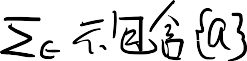 Σ∈ 不包含{a}